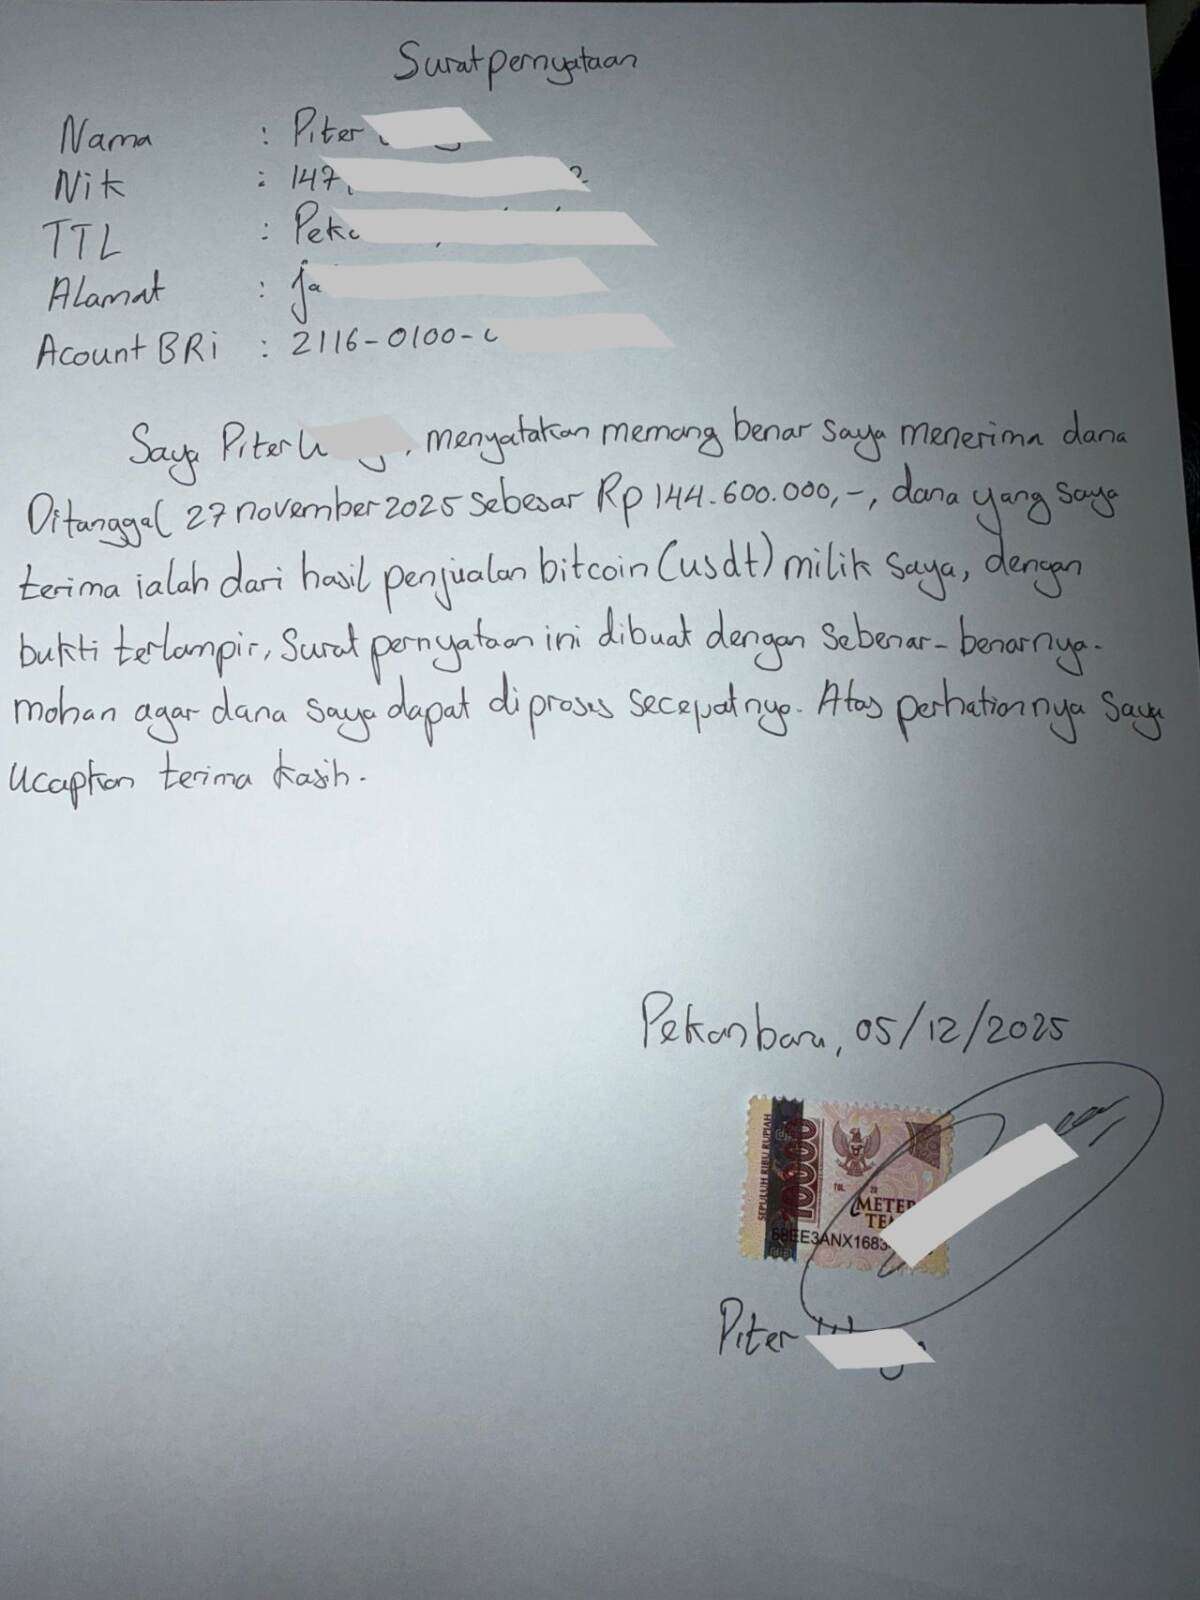 Surat pernyataan
Nama : Piter
Nik : 147
TTL : Peka
Alamat : Ja
Acount BRi : 2116-0100-
Saya Piter W , menyatakan memang benar saya menerima dana
Ditanggal 27 november 2025 sebesar Rp 144.600.000,-, dana yang saya
terima ialah dari hasil penjualan bitcoin (usdt) milik saya, dengan
bukti terlampir, surat pernyataan ini dibuat dengan sebenar-benarnya.
mohan agar dana saya dapat diproses secepatnya. Atas perhatiannya saya
ucapkan terima kasih.
Pekanbaru, 05/12/2025
SEPULUH RIBU RUPIAH
10000
TGL. 20
METER
TEM
68EE3ANX1683
Piter